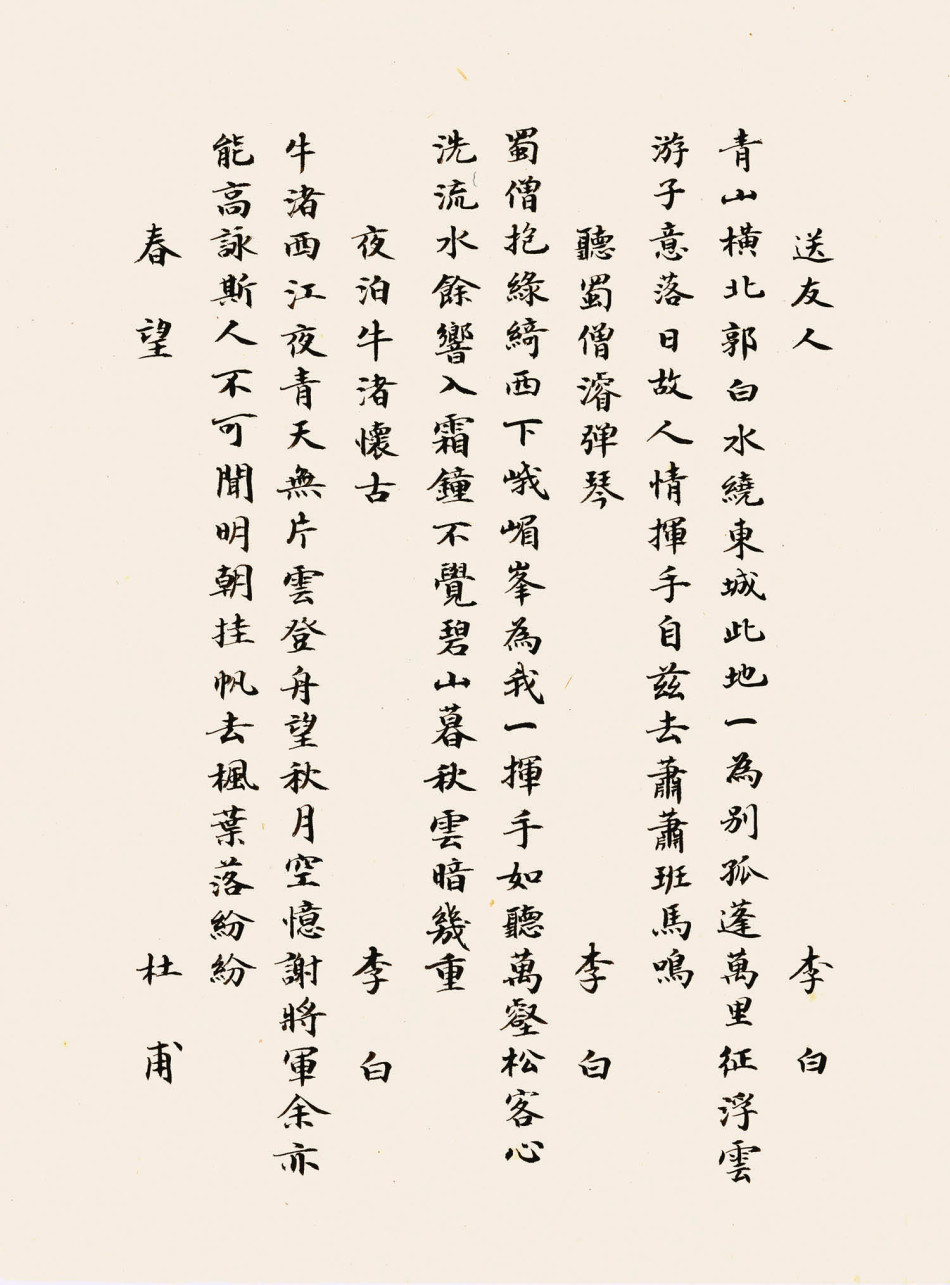 送友人 李白
青山橫北郭白水繞東城此地一為別孤蓬萬里征浮雲
游子意落日故人情揮手自茲去蕭蕭班馬鳴
聽蜀僧濬彈琴 李白
蜀僧抱綠綺西下峨嵋峯為我一揮手如聽萬壑松客心
洗流水餘響入霜鐘不覺碧山暮秋雲暗幾重
夜泊牛渚懷古 李白
牛渚西江夜青天無片雲登舟望秋月空憶謝將軍余亦
能高詠斯人不可聞明朝挂帆去楓葉落紛紛
春望 杜甫